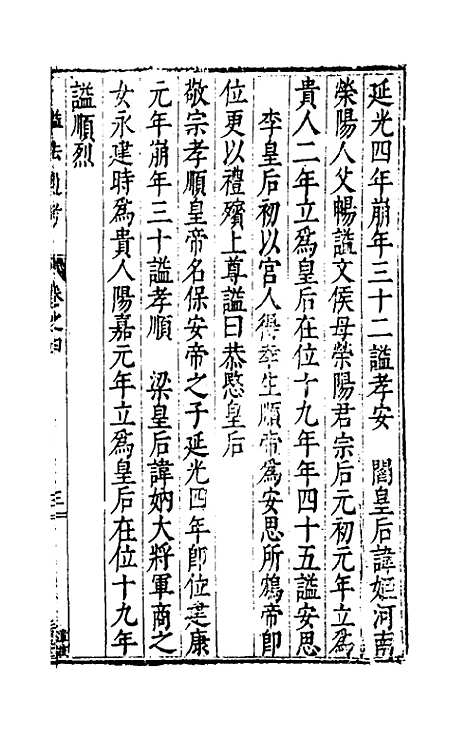 延光四年崩年三十二謚孝安　閻皇后諱姬河南
滎陽人父暢謚文侯母滎陽君宗后元初元年立爲
貴人二年立爲皇后在位十九年年四十五謚安思
李皇后初以宮人得幸生順帝爲安思所鴆帝卽
位更以禮殯上尊謚曰恭愍皇后
敬宗孝順皇帝名保安帝之子延光四年卽位建康
元年崩年三十謚孝順　梁皇后諱妠大將軍商之
女永建時爲貴人陽嘉元年立爲皇后在位十九年
謚順烈
謚法通考　卷之四